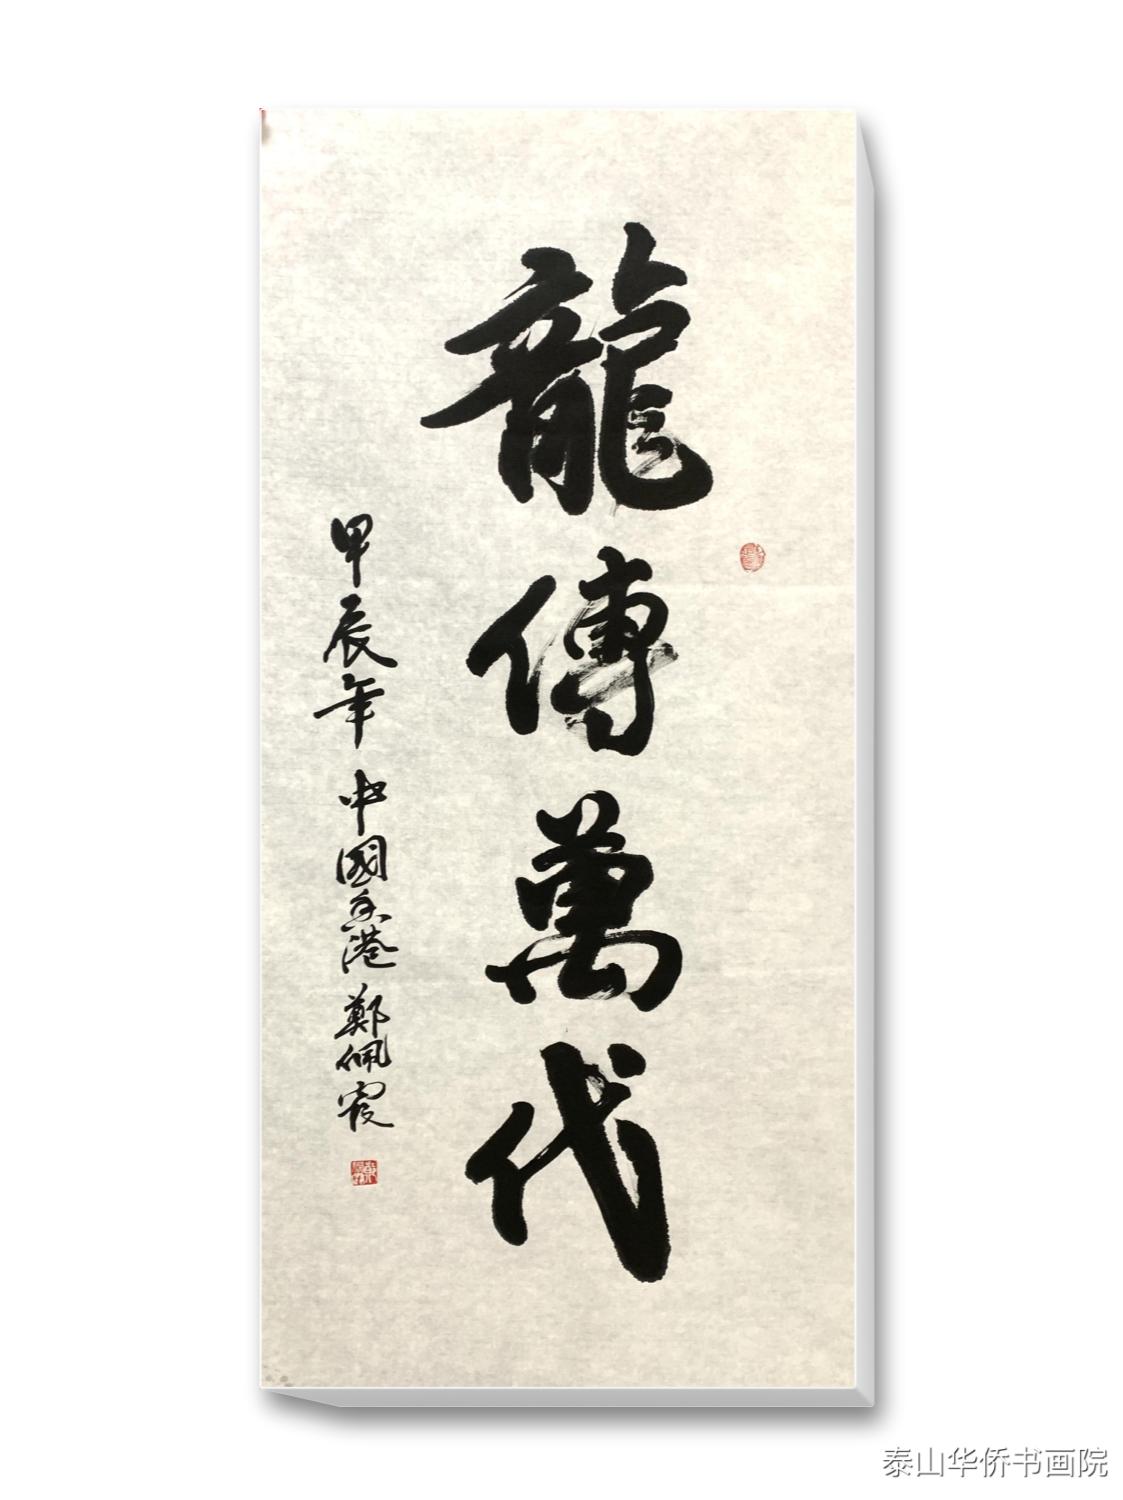 龍傳萬代
甲辰年 中國香港 鄭佩霞
泰山华侨书画院